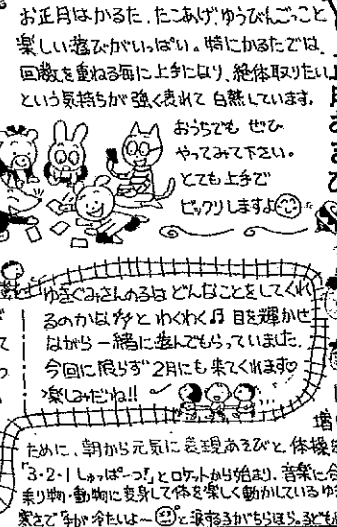 お正月は、かるた、たこあげ、ゆうびんごっこと
楽しい遊びがいっぱい。特にかるたでは、
回数を重ねる毎に上手になり、絶体取りたい
という気持ちが強く表れて白熱しています。
おうちでも ぜひ
やってみて下さい。
とても上手で
ビックリしますよ
ゆきぐみさんのるは どんなことをしてくれ
るのかな??とわくわく♫ 目を輝かせ
ながら一緒に遊んでもらっていました。
今回に限らず2月にも来てくれます♡
楽しみだね!!
ために、朝から元気に表現あそびと、体操を
"3・2・1しゅっぱーつ!"とロケットから始まり、音楽に合
乗り物・動物に変身して体を楽しく動かしているゆき
寒さで"手が冷たいよ〜"と涙する子がちらほら。子ども